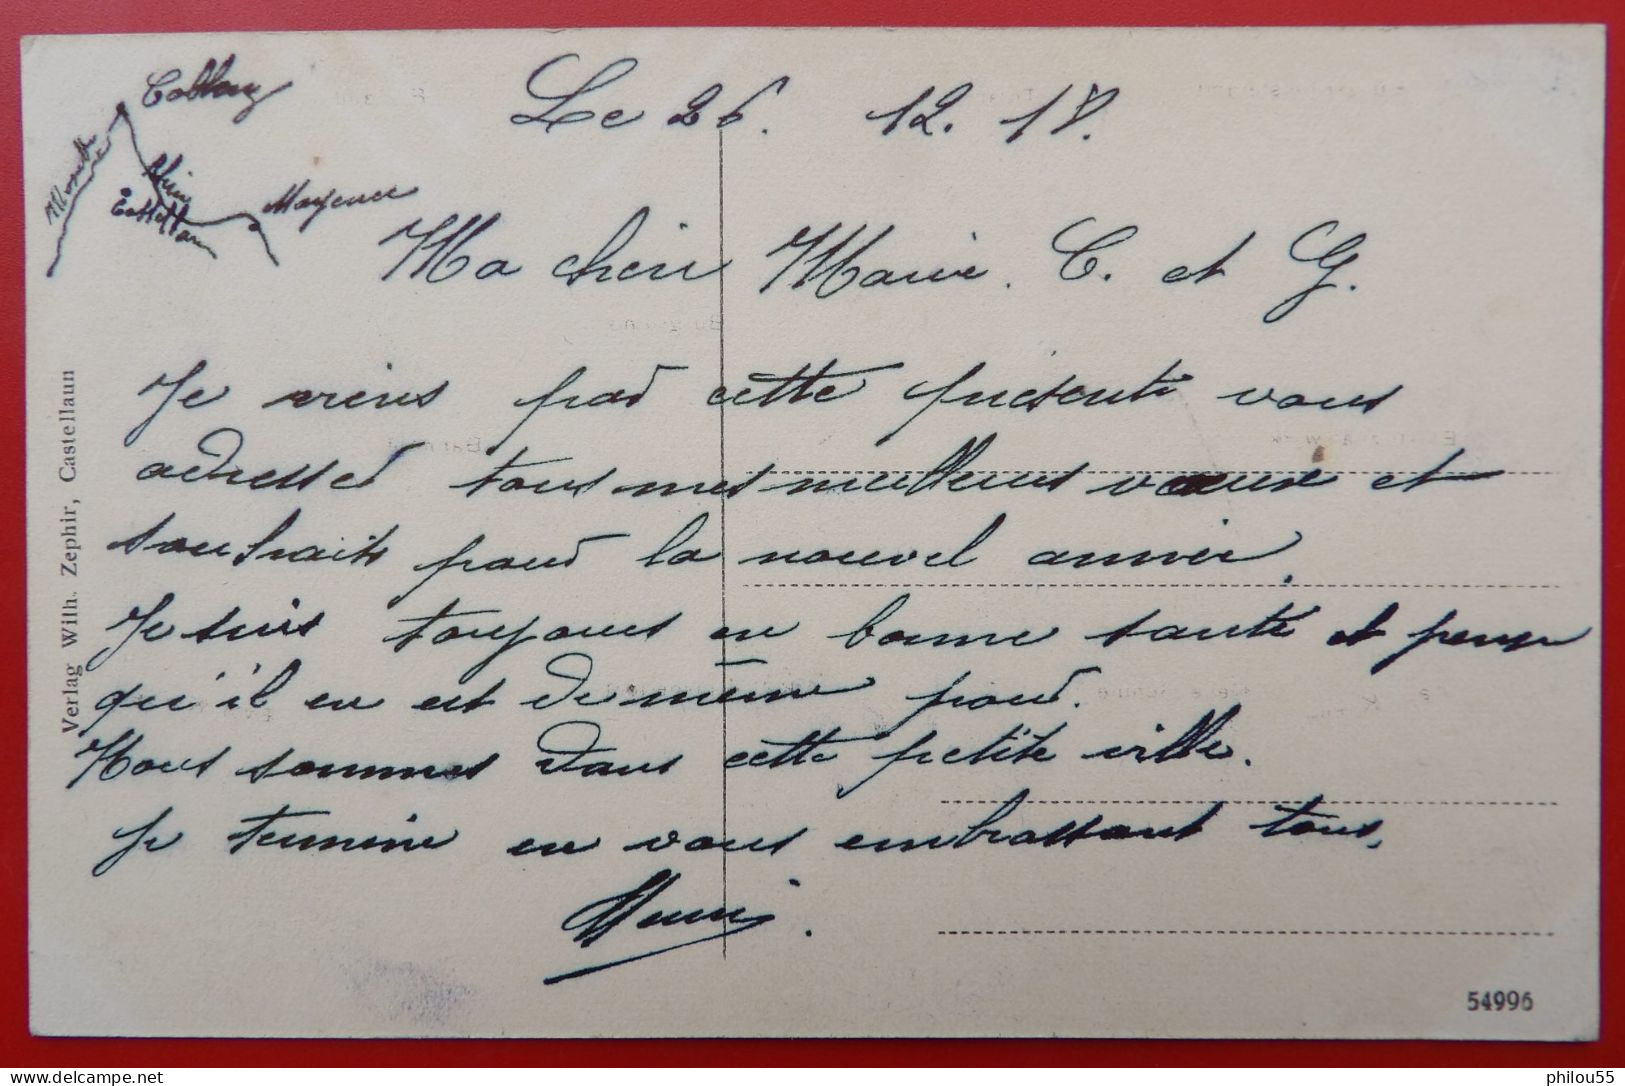 Coblenz
Moselle
Rhin
Castellaun
Mayence
Le 26. 12. 18.
Ma chère Marie. C. et G.
Je viens par cette présente vous
adresser tous mes meilleurs vœux et
souhaits pour la nouvel année.
Je suis toujours en bonne santé et pense
qu'il en est de même pour.
Nous sommes dans cette petite ville.
Je termine en vous embrassant tous,
Henri.
Verlag Wilh. Zephir, Castellaun
54996
delcampe.net
philou55